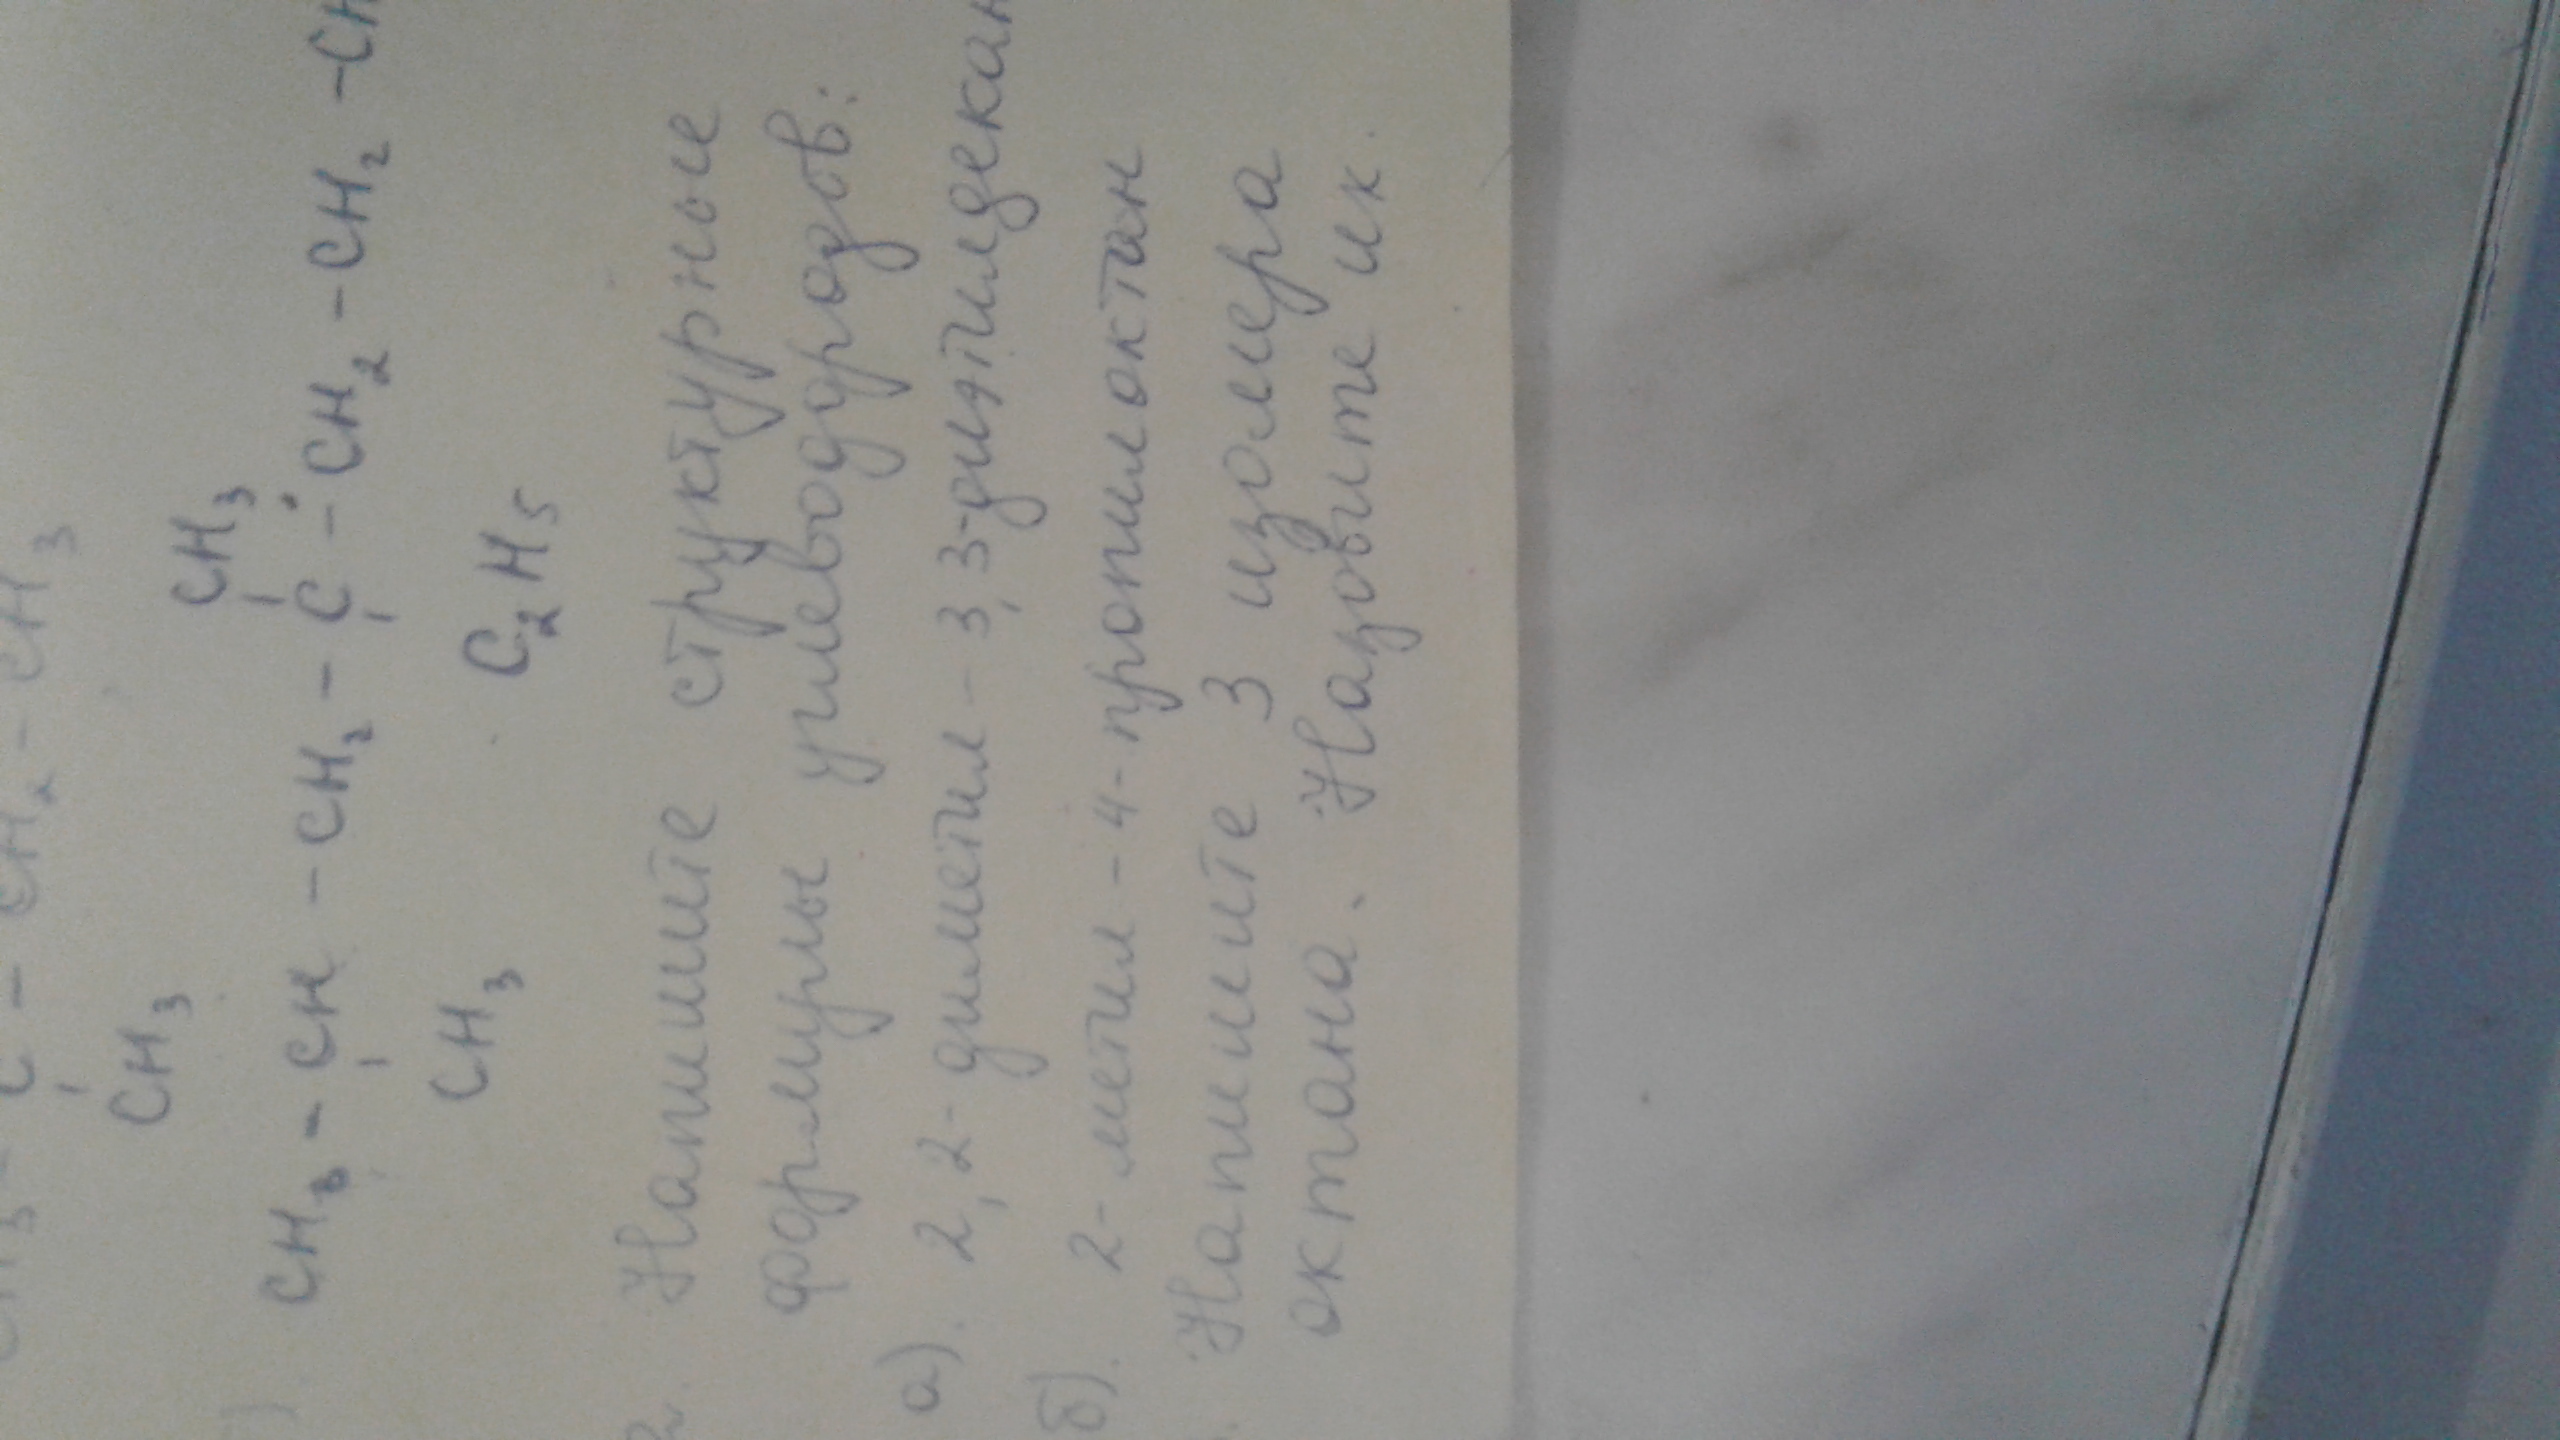 C - CH2 - CH3
CH3
CH3
CH3 - CH - CH2 - C - CH2 - CH2 - CH
CH3
C2H5
2. Напишите структурные
формулы углеводородов:
а). 2,2-диметил-3,3-диэтилдекан
б). 2-метил-4-пропилоктан
Напишите 3 изомера
октана. Назовите их.